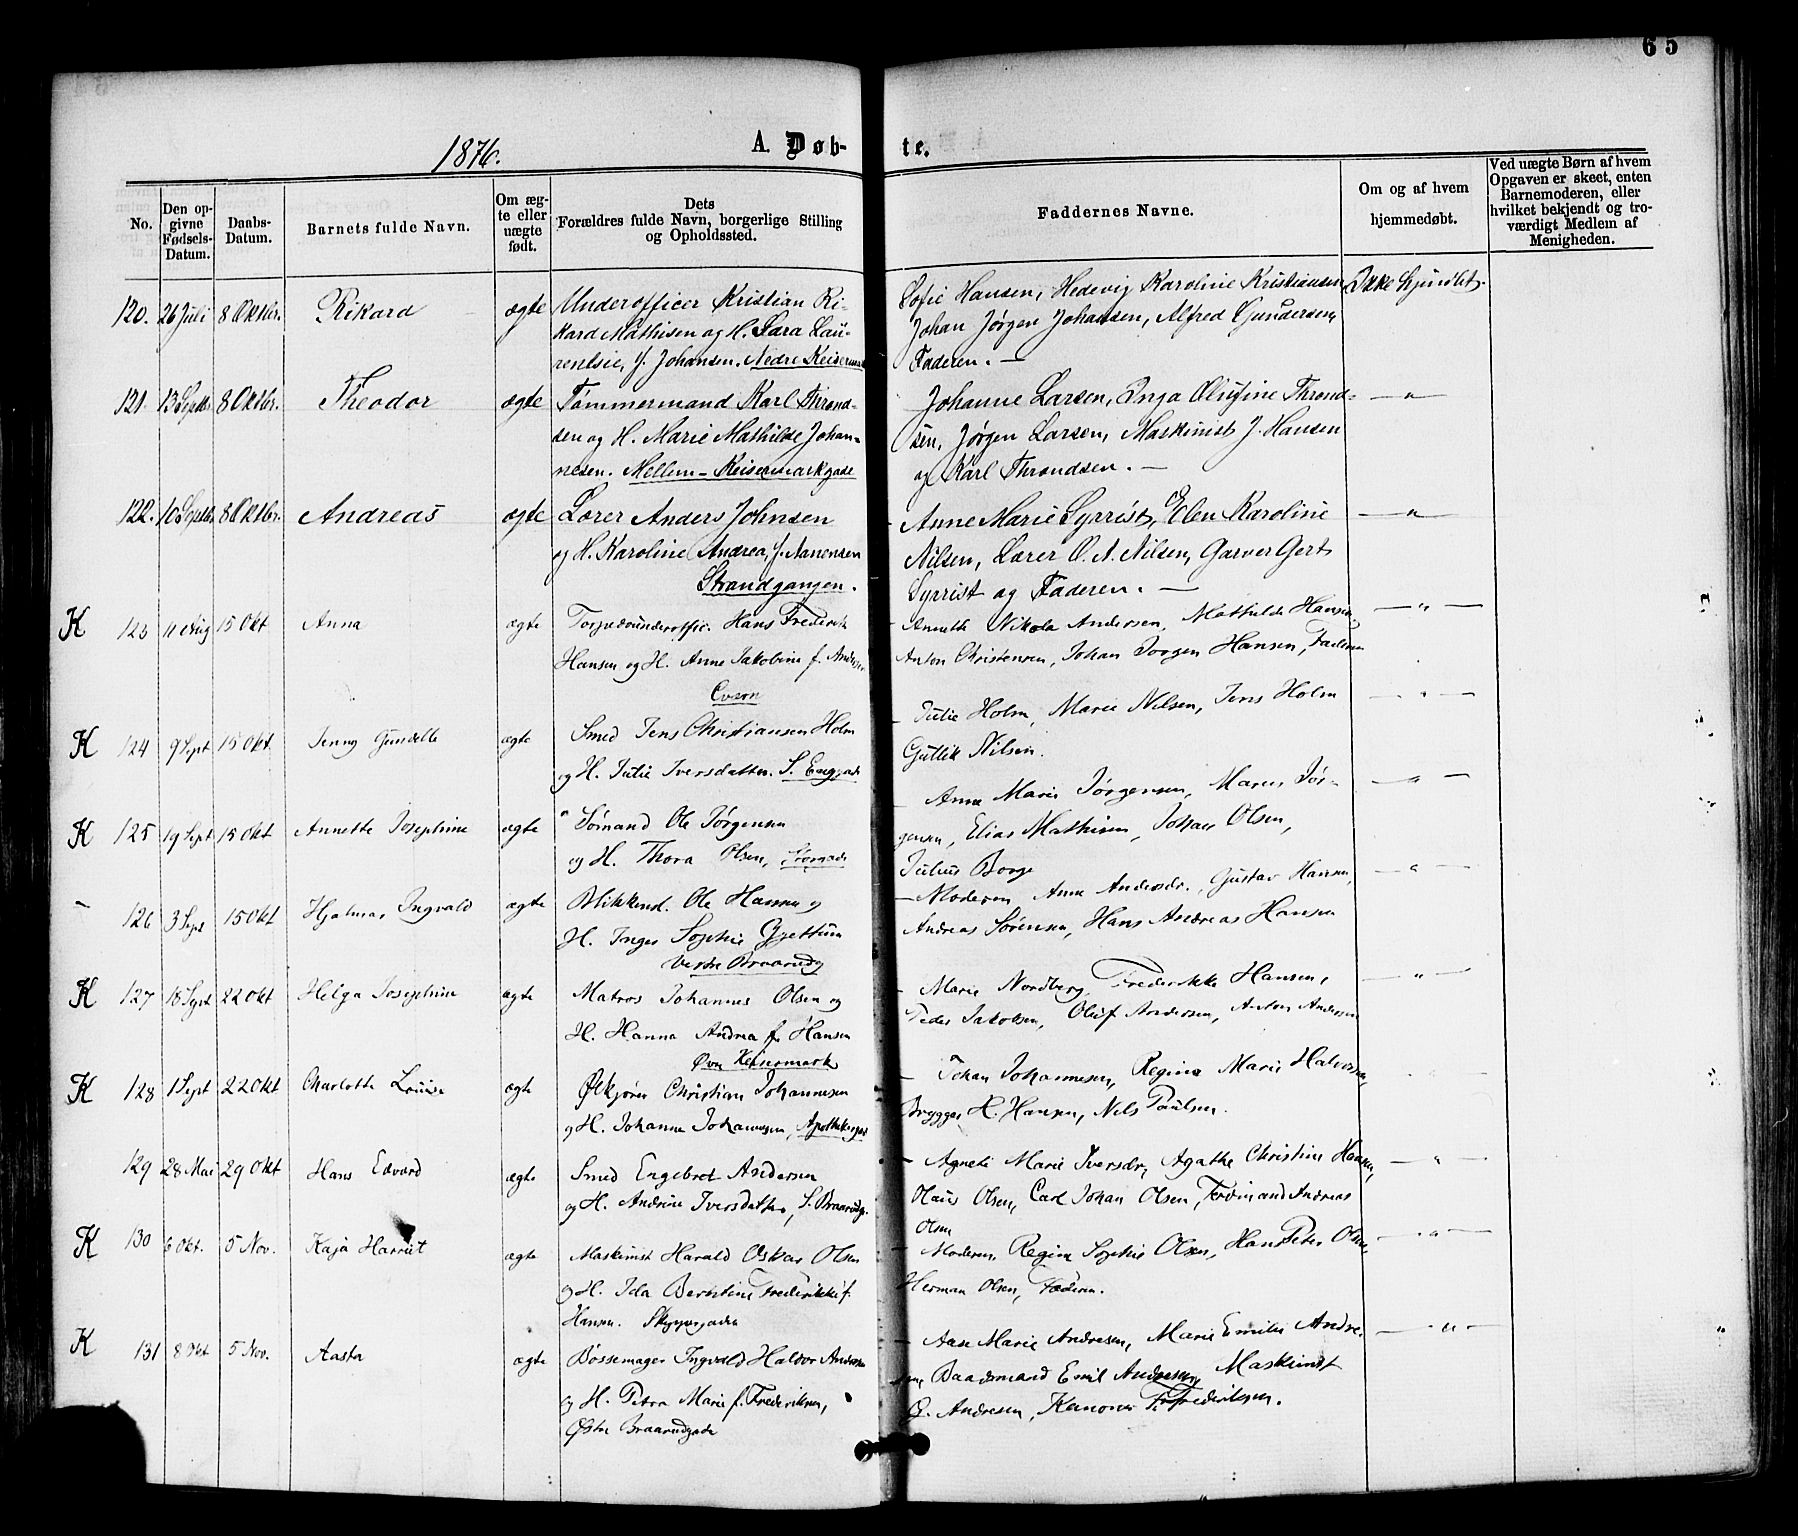 65
1876.
A. Døb-
te.
No.
Den op-
givne
Fødsels-
Datum.
Daabs-
Datum.
Barnets fulde Navn.
Om æg-
te eller
uægte
født.
Dets
Forældres fulde Navn, borgerlige Stilling
og Opholdssted.
Faddernes Navne.
Om og af hvem
hjemmedøbt.
Ved uægte Børn af hvem
Opgaven er skeet, enten
Barnemoderen, eller
hvilket bekjendt og tro-
værdigt Medlem af
Menigheden.
120. 26 Juli 8 Oktbr. Rikard ægte Underofficer Kristian Ri-
kard Mathisen og H. Lara Lau-
rentsie, f. Johansen. Nedre Keisermark
Sofie Hansen, Hedevig Karoline Kristiansen
Johan Jørgen Johansen, Alfred Gundersen,
Faderen. —
Ikke hjmdøbt.
121. 13 Septbr. 8 Oktbr. Theodor ægte Tømmermand Karl Thrond-
sen og H. Marie Mathilde Johan-
nesen. Mellem-Keisermarkgade
Johanne Larsen, Inga Olufine Thrond-
sen, Jørgen Larsen, Maskinist J. Hansen
og Karl Throndsen. —
— " —
122. 10 Septbr. 8 Oktbr. Andreas ægte Lorer Anders Johnsen
og H. Karoline Andrea, f. Aanensen
Strandgangen.
Anne Marie Syrrist, Elen Karoline
Nilsen, Lærer O. A. Nilsen, Garver Gert
Syrrist og Faderen. —
— " —
K 123 11 Aug 15 Okt Anna ægte Torpedounderoffic. Hans Frederik
Hansen og H. Anne Jakobine f. Andersen
- Annette Nikola Andersen, Mathilde Hansen,
Anton Christensen, Johan Jørgen Hansen, Faderen
— " —
K 124 9 Sept 15 Okt. Jenny Gundelle ægte Smed Jens Christiansen Holm
og H. Julie Iversdatter. S. Enggade
- Julie Holm, Marie Nilsen, Jens Holm
Gullik Nilsen.
— " —
K 125 19 Sept 15 Okt Annette Josephine ægte Sømand Ole Jørgensen
og H. Thora Olsen,
- Anne Marie Jørgensen, Maren Jør-
gensen, Elias Mathisen, Johan Olsen,
Julius Borge
— " —
- 126 3 Sept 15 Okt Hjalmar Ingvald ægte Blikkensl. Ole Hansen og
H. Inger Sophie Gjettum
Vestre Braarudg
- Moderen Anne Andersdr., Gustav Hansen,
Andreas Sørensen, Hans Andreas Hansen
— " —
K 127 18 Sept 22 Okt Helga Josephine ægte Matros Johannes Olsen og
H. Hanna Andrea f. Hansen
Øvre Keisermark
- Marie Nordberg, Frederikke Hansen,
Peder Jakobsen, Oluf Andersen, Anton Andersen
— " —
K 128 1 Sept 22 Okt Charlotte Louise ægte Ølkjører Christian Johannesen
og H. Johanne Johannesen, Apothekergad
- Johan Johannesen, Regine Marie Halvorsen,
Brygger H. Hansen, Nils Paulsen.
129 28 Mai 29 Okt Hans Edvard ægte Smed Engebret Andersen
og H. Andrine Iversdatter, S. Braarudg.
- Agnete Marie Iversdr, Agathe Christine Hansen,
Olaus Olsen, Carl Johan Olsen, Ferdinand Andreas
Olsen
— " —
K 130 6 Okt. 5 Nov. Kaja Harriet ægte Maskinist Harald Oskar Olsen
og H. Ida Berntine Frederikke f.
Hansen. Skippergaden
- Moderen, Regine Sophie Olsen, Hans Peter Olsen,
Herman Olsen, Faderen.
— " —
K 131 8 Okt 5 Nov. Aasta ægte Bøssemager Ingvald Haldor Andersen
og H. Petra Marie f. Frederiksen,
Østre Braarudgade
- Aase Marie Andresen, Marie Emilie Andre-
sen, Baadsmand Emil Andresen, Maskinist
O. Andresen, Kanoner F. Frederiksen.
— " —